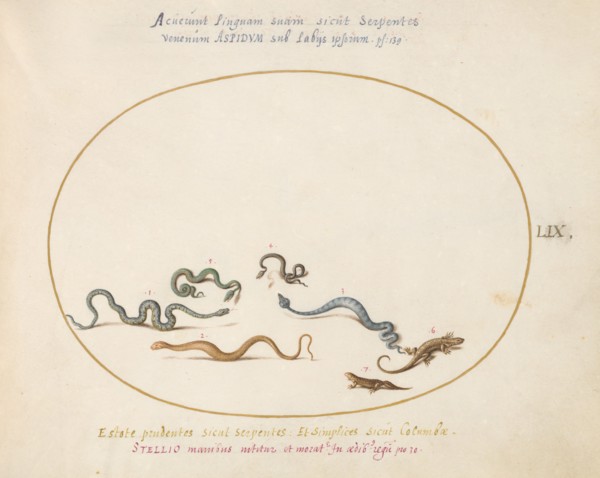 Acuerunt linguam suam sicut Serpentes
venenum ASPIDVM sub labijs ipsorum. ps: 139
LIX.
4
6
1
5
2
6
7
Estote prudentes sicut Serpentes. Et Simplices sicut Columbæ.
STELLIO manibus nititur et morat. in ædib. regū